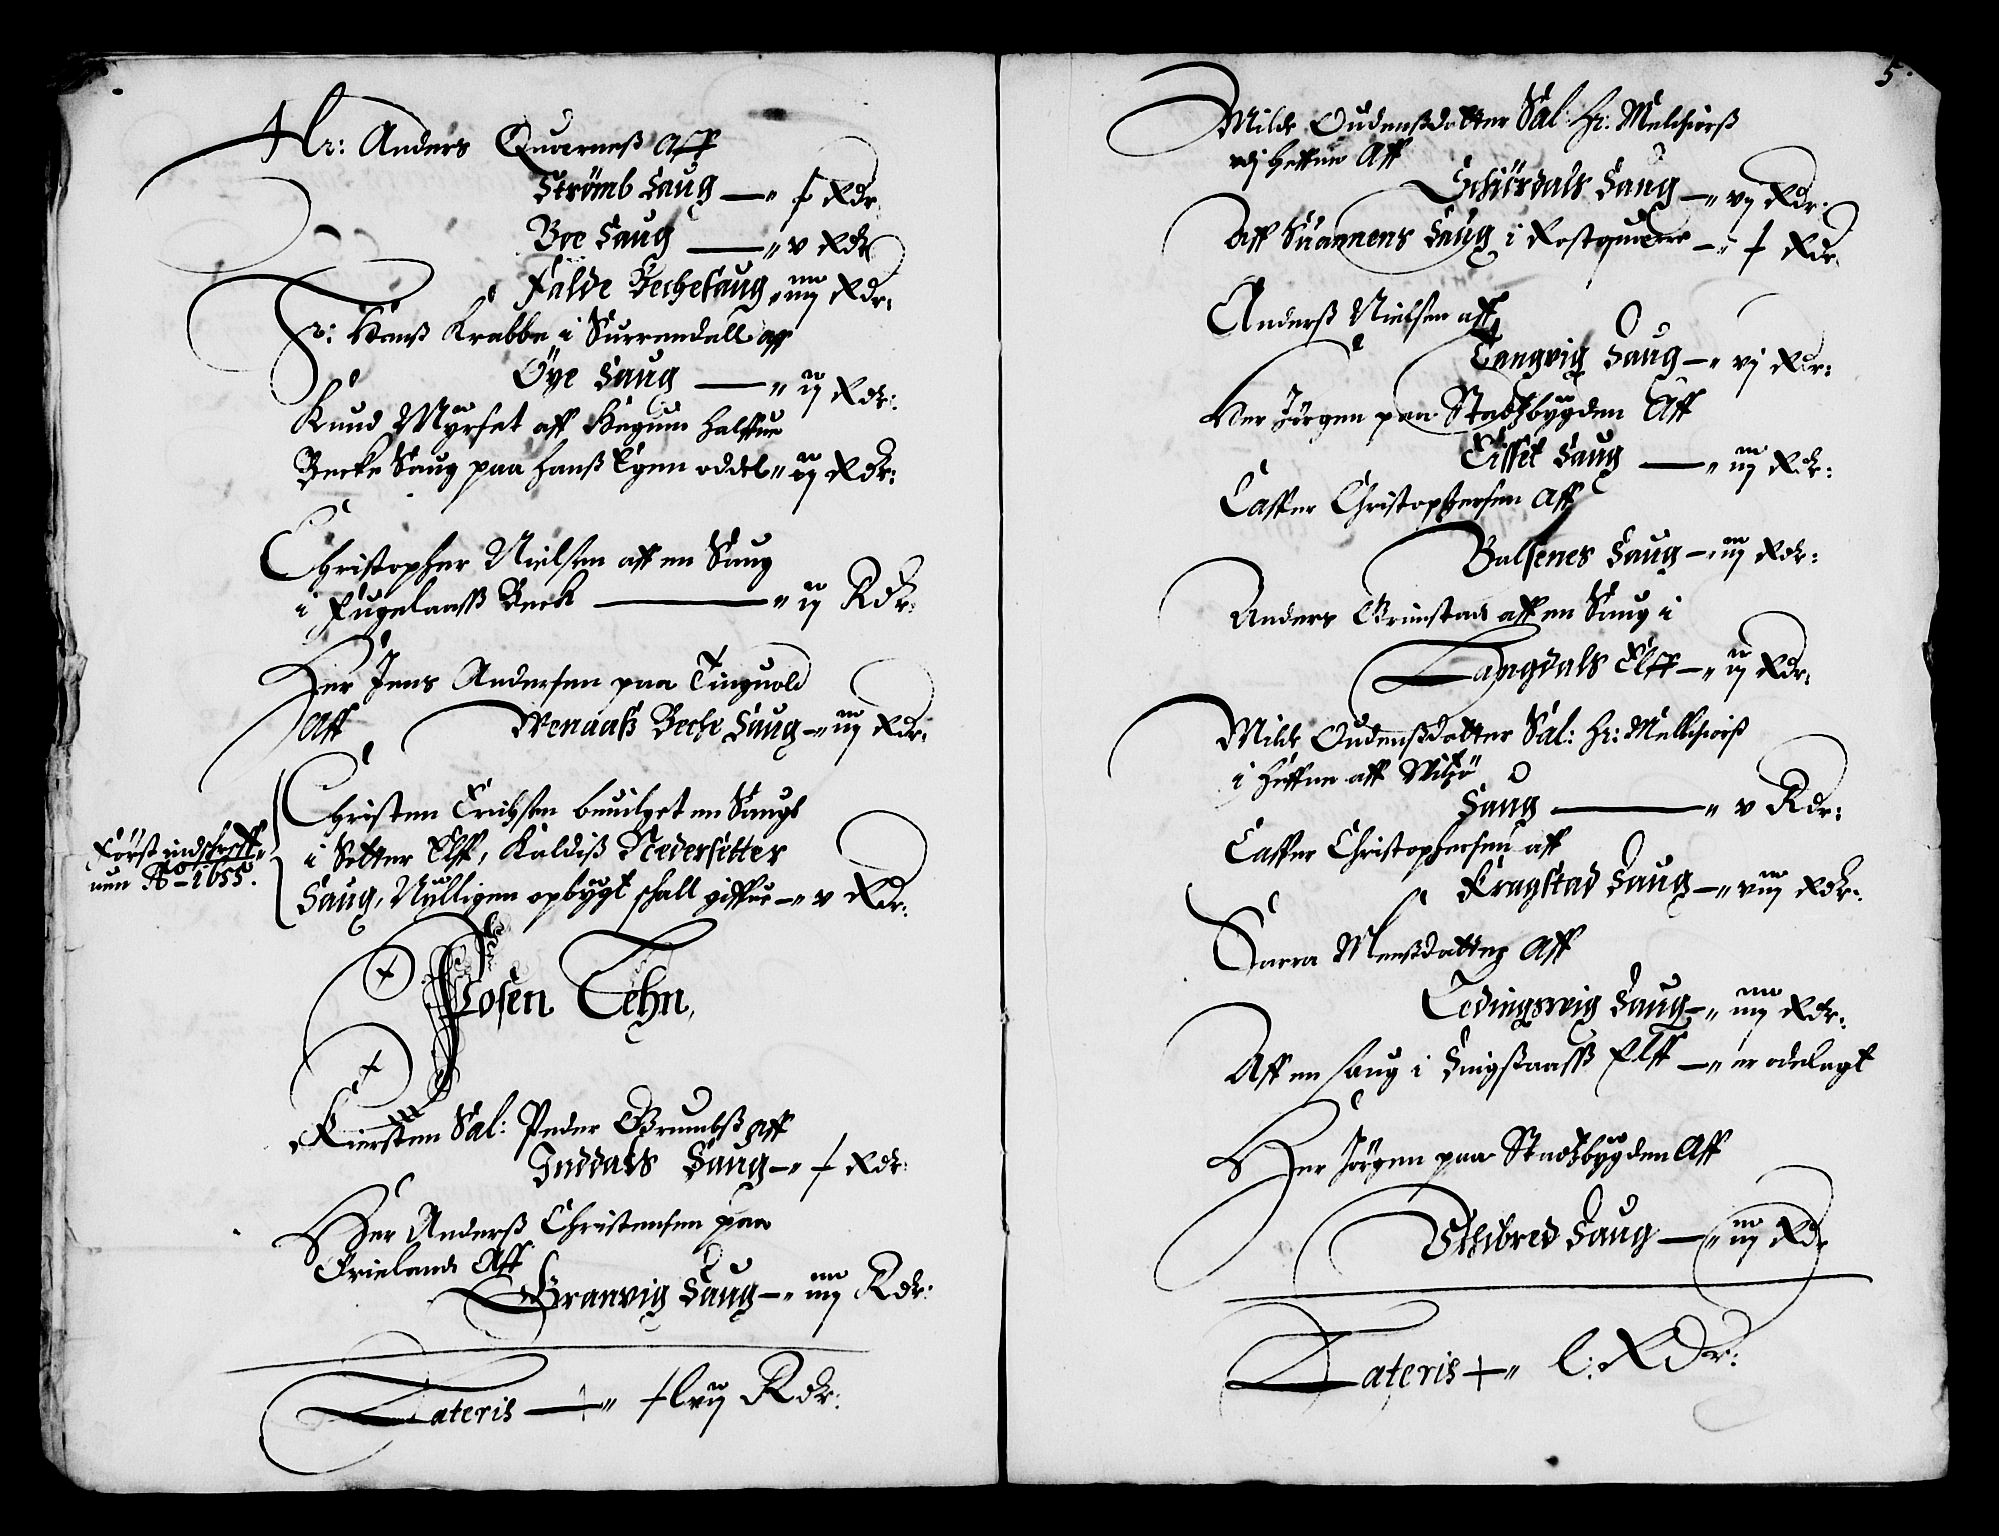 Hr: Anders Quernes aff
Strömb Saug — " x Rdr
Boe Saug — " v Rdr
Falde Beche Saug " iiij Rdr:
Hr: Hans Krabbe i Surrendall aff
Öye Saug — " ij Rdr:
Knud Myrset aff Hegum halffue
Becke Saug paa hans Egen oddel " ij Rdr:
Christopher Nielsen aff en Saug
i Fugelaass Beck — " ij Rdr:
Her Jens Andersen paa Tinguold
aff Wenaass Bech Saug — " iij Rdr:
Christen Erichsen beuilget en Saugs
i Setter Elff, Kaldis Nedersetter
Saug, Nylligen opbygt schall giffue — " v Rdr:
Först indschreff-
uen Ao 1655.
Fosen Lehn,
Kiersten Sal: Peder Grumbs aff
Inddals Saug — " x Rdr:
Her Anders Christensen paa
Örieland Aff
Granvig Saug — " iiij Rdr:
Lateris — " xlvij Rdr:
5.
Milde Oudensdatter Sal: Hr: Melchiors
udj Heffne Aff
Schiördals Saug — " vj Rdr:
Aff Suannens Saug i — " x Rdr:
Anders Nielsen aff
Tangvig Saug — " vj Rdr:
Her Jörgen paa Stadzbygden Aff
Eisset Saug — " iij Rdr:
Casper Christophersen aff
Balsenes Saug — " iij Rdr:
Anders Grimstad aff en Saug i
Langdals Elff — " ij Rdr:
Milde Oudensdatter Sal: Hr: Melchiors
i Heffne aff
Saug — " v Rdr:
Casper Christophersen aff
Kragstad Saug — " viij Rdr:
Sarra Mensdatter Aff
Tedingswig Saug — " iiij Rdr:
Aff en Saug i Elff — " er ödelagt
Her Jörgen paa Stadzbygden Aff
Uthbred Saug — " iij Rdr
Lateris — " l: Rdr: